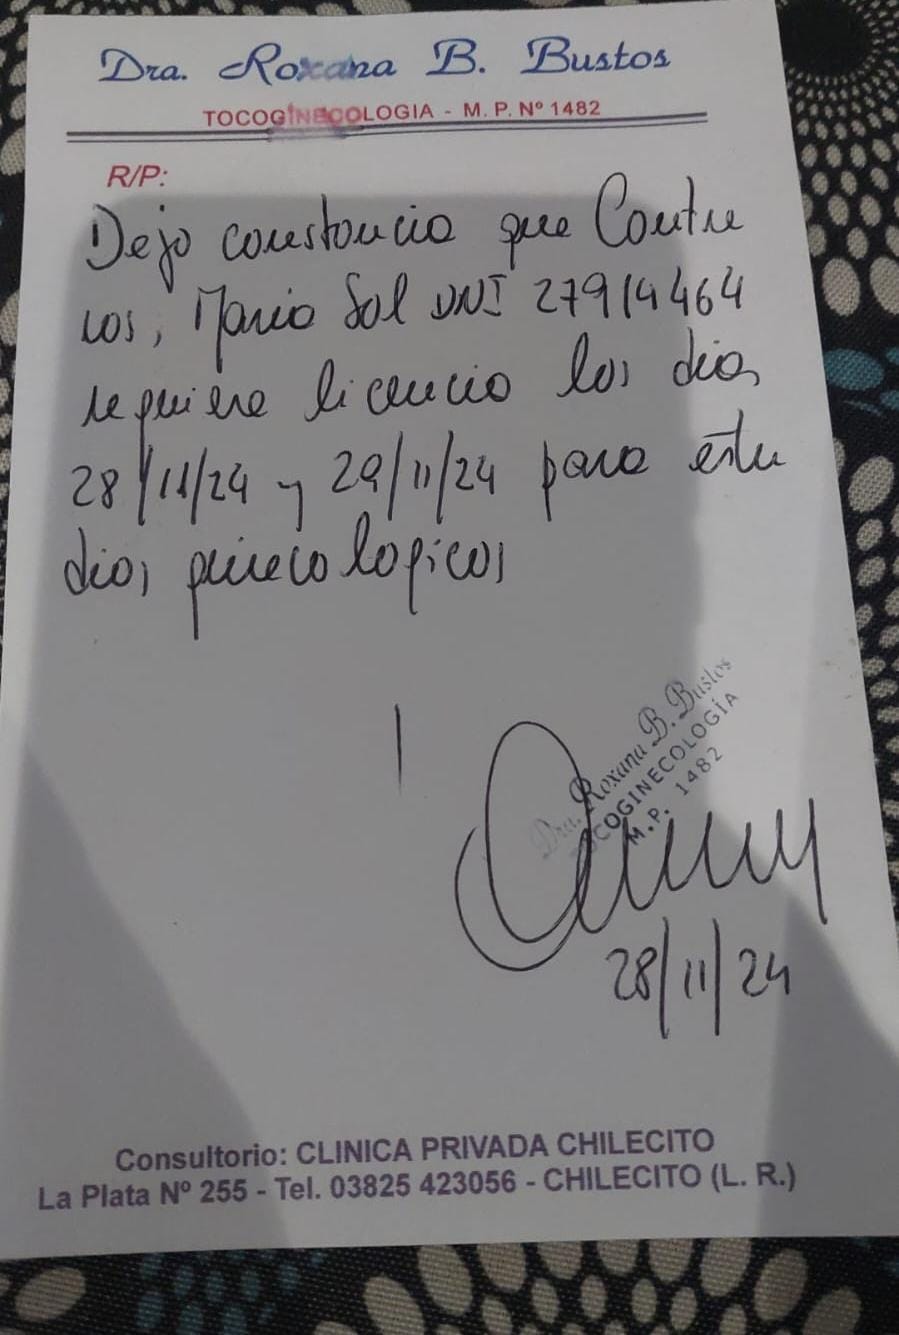 Dra. Roxana B. Bustos
TOCOGINECOLOGIA - M. P. Nº 1482
R/P:
Dejo constancia que Contre
ras, Maria Sol DNI 27914464
requiere licencia los dias
28/11/24 y 29/11/24 para estu
dios ginecologicos
Dra. Roxana B. Bustos
TOCOGINECOLOGÍA
M.P. 1482
28/11/24
Consultorio: CLINICA PRIVADA CHILECITO
La Plata Nº 255 - Tel. 03825 423056 - CHILECITO (L. R.)